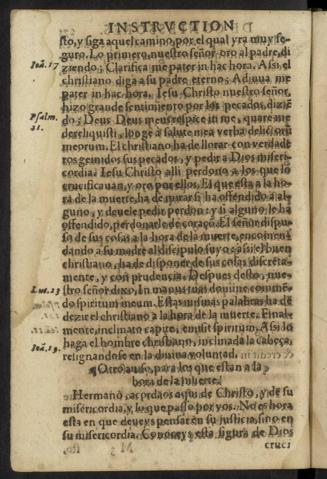 INSTRVCTION
sto, y siga aquel camino, por el qual yra muy se-
guro. Lo primero, nuestro señor oro al padre, di
Ioã. 17 ziendo; Clarifica me pater in hac hora. Assi, el
christiano diga a su padre eterno; Adiuua me
pater in hac hora. Iesu Christo nuestro señor,
hizo grande sentimiento por los pecados, dizié
Psalm. 21. do; Deus Deus meus respice in me, quare me
dereliquisti, longe à salute mea verba delictorũ
meorum. El christiano ha de llorar con verdade
ros gemidos sus pecados, y pedir a Dios miseri-
cordia. Iesu Christo alli perdono a los que lo
crucificauan, y oro por ellos. El que esta a la ho-
ra de la muerte, ha de mirar si ha offendido a al-
guno, y deuele pedir perdon: y si alguno le ha
offendido, perdonarle de coraçõ. El señor dispu-
so de sus cosas a la hora de la muerte, encomen
dando a su madre al discipulo suyo: assi el buen
christiano, ha de disponer de sus cosas discreta-
mente, y con prudencia. Despues desto, nue-
Luc. 23 stro señor dixo, In manus tuas domine commẽ-
do spiritum meum. Estas mismas palabras ha de
dezir el christiano a la hora de la muerte. Final-
mente, inclinato capite, emisit spiritum. Assi lo
Ioã. 19. haga el hombre christiano, inclinada la cabeça,
resignandose en la diuina voluntad.
Otro auiso, para los que estan a la
hora de la muerte.
Hermano, acordaos aqui de Christo, y de su
misericordia, y lo que passo por vos. No es hora
esta en que deueys pensar en su justicia, sino en
su misericordia. Conoceys esta figura de Dios
cruci